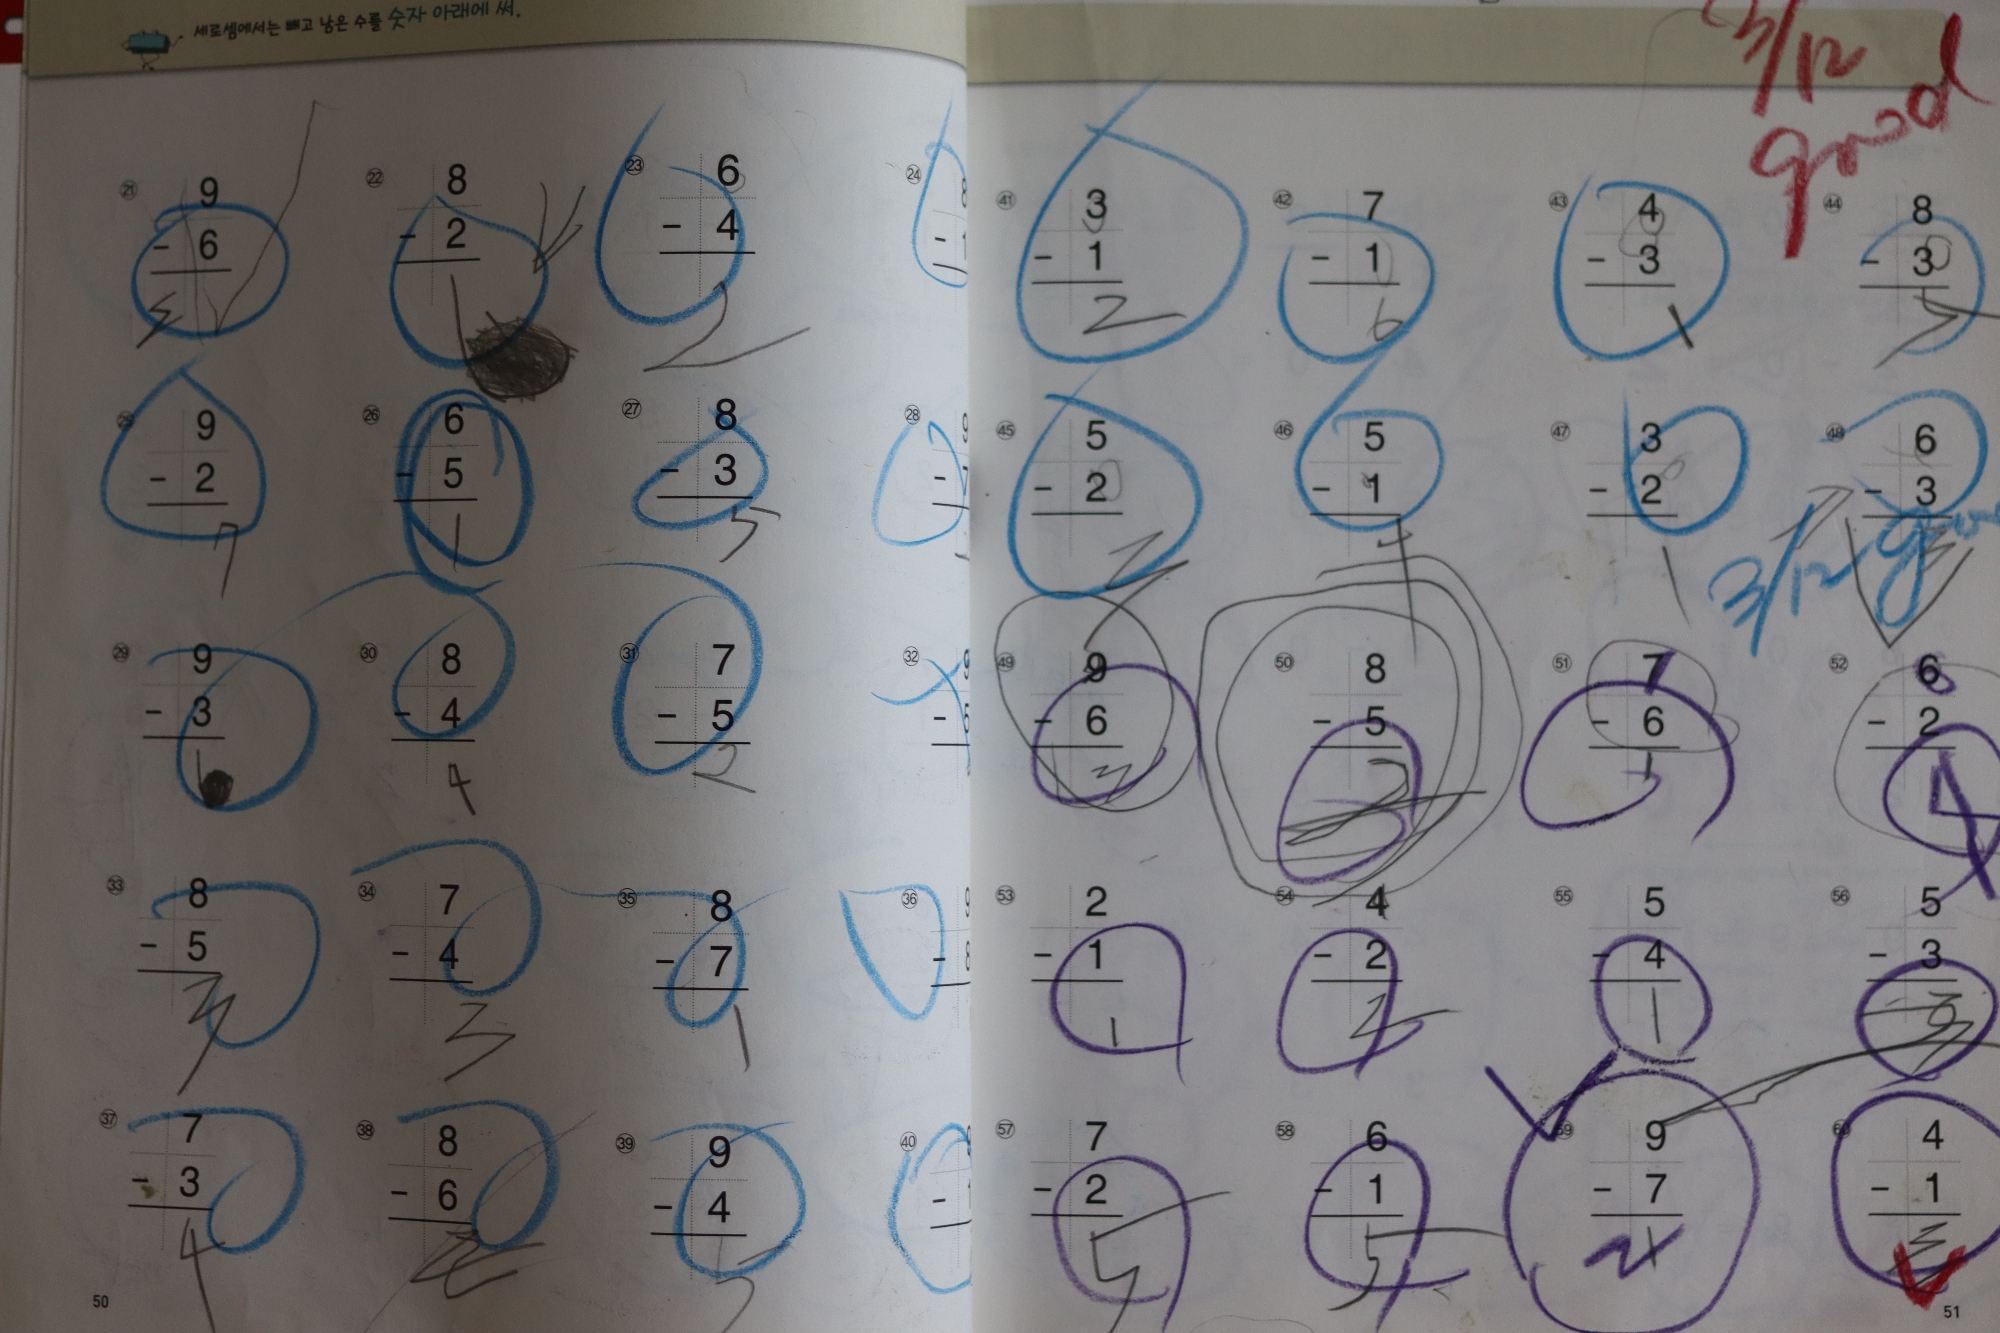 세로셈에서는 빼고 남은 수를 숫자 아래에 써.
3/12
good
㉑ 9 - 6 3
㉒ 8 - 2
㉓ 6 - 4 2
㉔
㉕ 9 - 2 7
㉖ 6 - 5 1
㉗ 8 - 3 5
㉘
㉙ 9 - 3
㉚ 8 - 4 4
㉛ 7 - 5 2
㉜
㉝ 8 - 5 3
㉞ 7 - 4 3
㉟ 8 - 7 1
㊱
㊲ 7 - 3 4
㊳ 8 - 6 2
㊴ 9 - 4 5
㊵
50
㊶ 3 - 1 2
㊷ 7 - 1 6
㊸ 4 - 3 1
㊹ 8 - 3 5
㊺ 5 - 2 3
㊻ 5 - 1 4
㊼ 3 - 2 1
㊽ 6 - 3 3
3/12 good
㊾ 9 - 6 3
㊿ 8 - 5 3
51 7 - 6 1
52 6 - 2 4
53 2 - 1 1
54 4 - 2 2
55 5 - 4 1
56 5 - 3
57 7 - 2 5
58 6 - 1 5
59 9 - 7 2
60 4 - 1 3
51